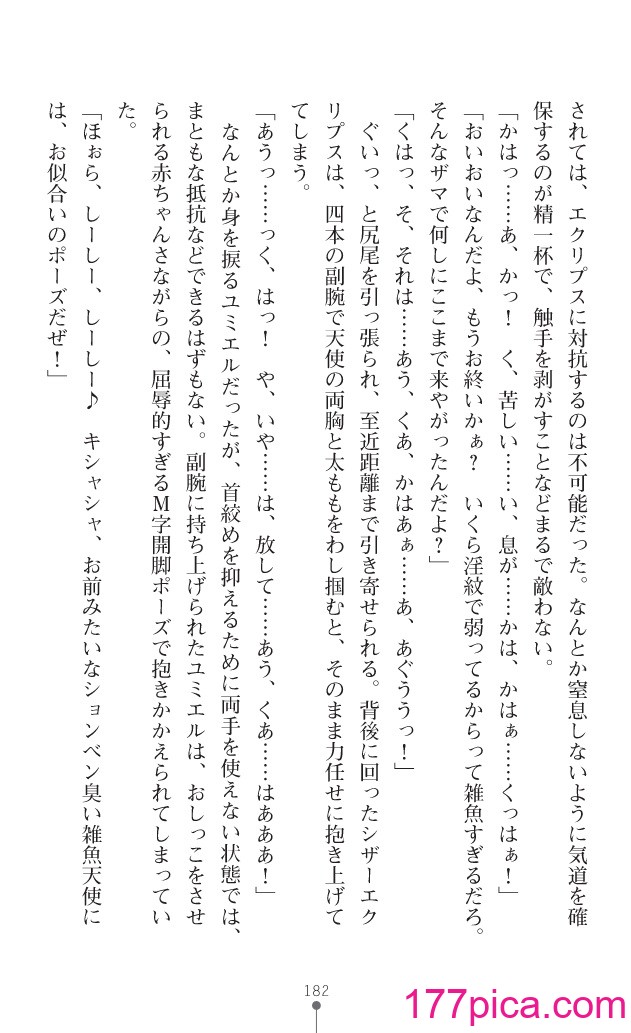 されては、エクリプスに対抗するのは不可能だった。なんとか窒息しないように気道を確
保するのが精一杯で、触手を剥がすことなどまるで敵わない。
「かはっ……あ、かっ！　く、苦しい……い、息が……かは、かはぁ……くっはぁ！」
「おいおいなんだよ、もうお終いかぁ？　いくら淫紋で弱ってるからって雑魚すぎるだろ。
そんなザマで何しにここまで来やがったんだよ？」
「くはっ、そ、それは……あう、くあ、かはあぁ……あ、あぐううっ！」
　ぐいっ、と尻尾を引っ張られ、至近距離まで引き寄せられる。背後に回ったシザーエク
リプスは、四本の副腕で天使の両胸と太ももをわし掴むと、そのまま力任せに抱き上げて
てしまう。
「あうっ……っく、はっ！　や、いや……は、放して……あう、くあ……はあああ！」
　なんとか身を捩るユミエルだったが、首絞めを抑えるために両手を使えない状態では、
まともな抵抗などできるはずもない。副腕に持ち上げられたユミエルは、おしっこをさせ
られる赤ちゃんさながらの、屈辱的すぎるＭ字開脚ポーズで抱きかかえられてしまってい
た。
「ほぉら、しーしー、しーしー♪　キシャシャ、お前みたいなションベン臭い雑魚天使に
は、お似合いのポーズだぜ！」
182
177pica.com